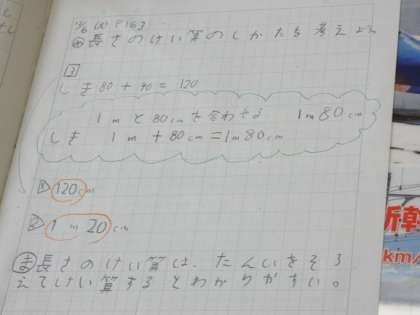 12/6 (火) P163
め 長さのけい算のしかたを考えよう
3
しき 80 + 40 = 120
1m と 80cm を合わせる 1m80cm
しき 1m + 80cm = 1m80cm
① 120cm
② 1m20cm
ま 長さのけい算は、たんいをそろ
えてけい算するとわかりやすい。
新幹
km/